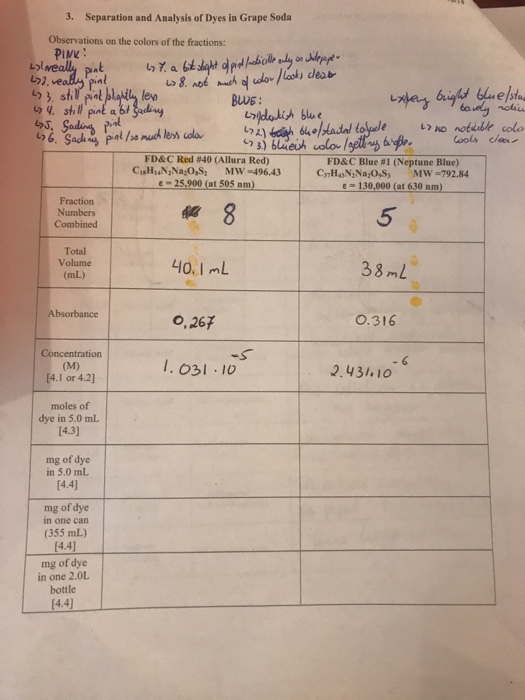 3. Separation and Analysis of Dyes in Grape Soda
Observations on the colors of the fractions:
PINK:
pink
2. really pink
3. still pink slightly less
4. still pink a bit fading
5. fading pink
6. fading pink/so much less color
7. a bit slight of pink/noticible only on
8. not much of color/looks clear
BLUE:
1) darkish blue
2) blue/started to fade
3) blueish color/getting
bright blue/
barely
no color
looks clear
FD&C Red #40 (Allura Red)
C₁₈H₁₄N₂Na₂O₈S₂ MW =496.43
ε = 25,900 (at 505 nm)
FD&C Blue #1 (Neptune Blue)
MW =792.84
ε = 130,000 (at 630 nm)
Fraction Numbers Combined
8
5
Total Volume (mL)
40.1 mL
38 mL
Absorbance
0.267
0.316
Concentration (M) [4.1 or 4.2]
1.031 · 10⁻⁵
2.431 · 10⁻⁶
moles of dye in 5.0 mL [4.3]
mg of dye in 5.0 mL [4.4]
mg of dye in one can (355 mL) [4.4]
mg of dye in one 2.0L bottle [4.4]